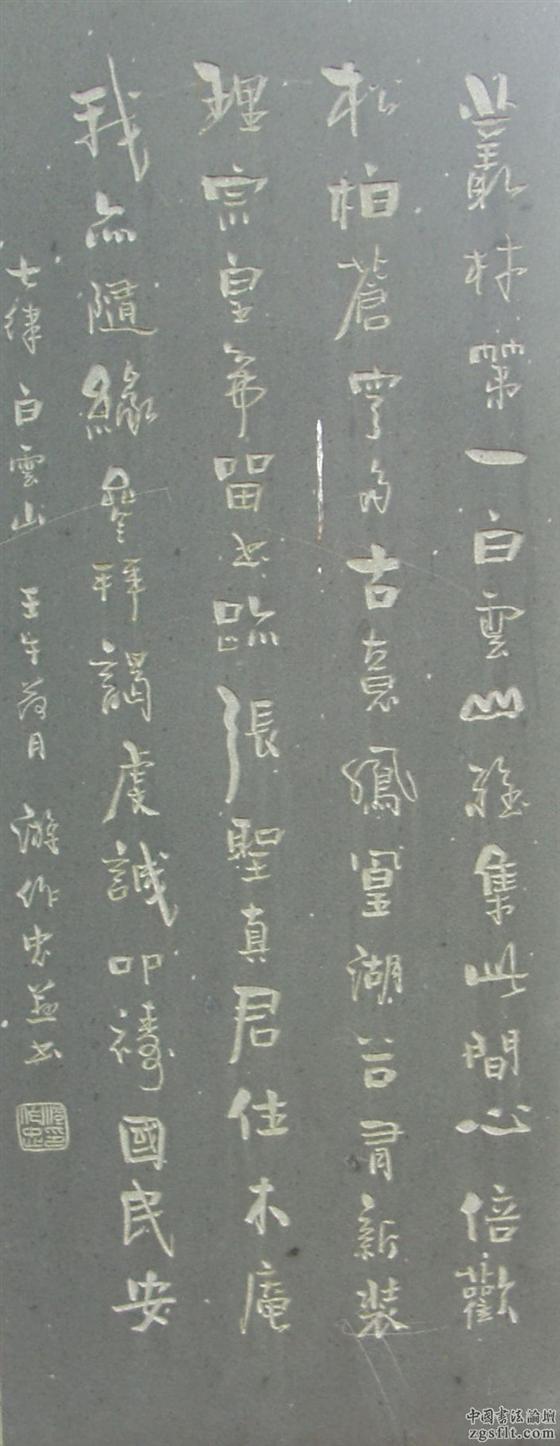 叢林第一白雲山雅集此間心倍歡
松柏蒼穹多古意鳳凰湖谷有新裝
理宗皇帝留書跡張聖真君住木庵
我亦隨緣參拜謁虔誠叩禱國民安
七律 白雲山 壬午月 游作忠並書
中國書法論壇
zgsflt.com